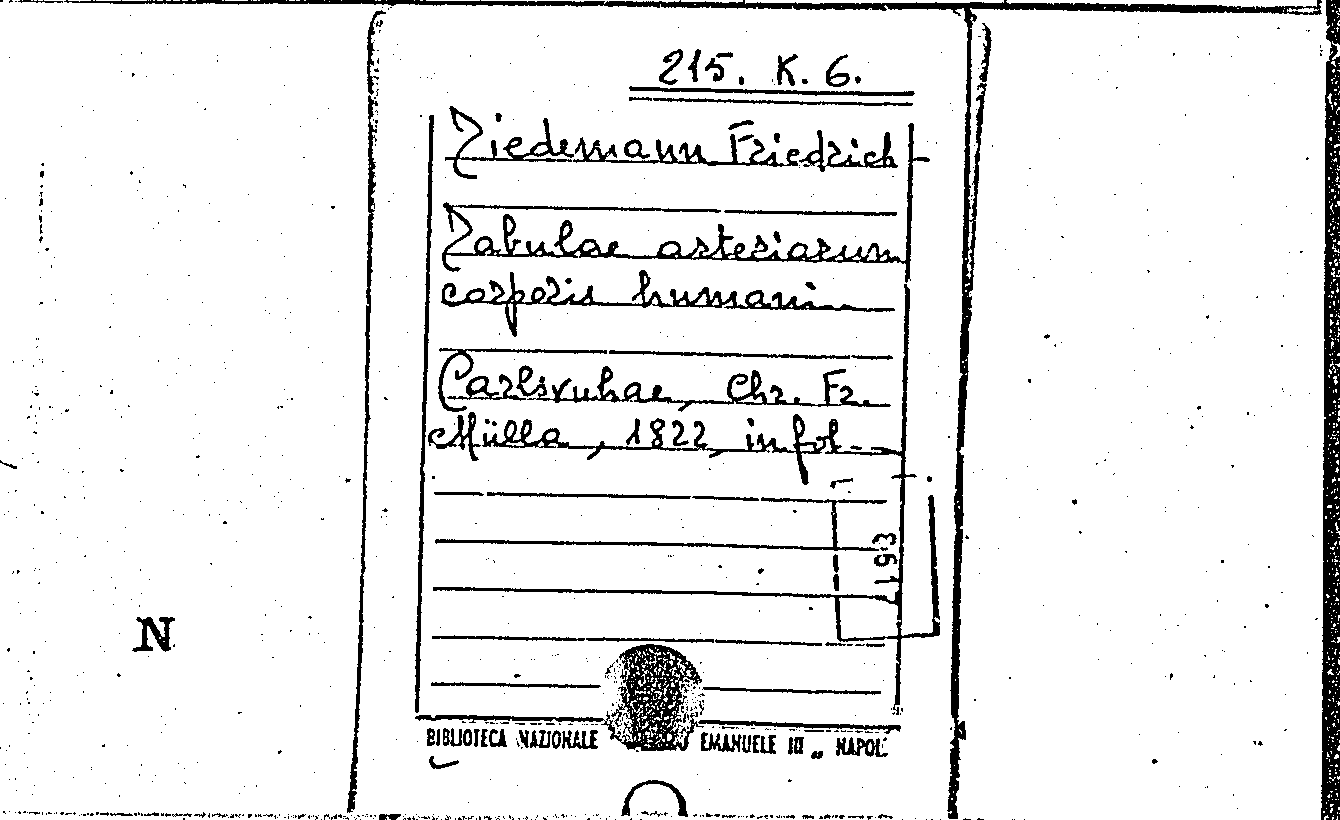 215. K. 6.
Tiedemann Friedrich
Tabulae arteriarum
corporis humani
Carlsruhae, Chr. Fr.
Mülla, 1822, in fol.
N
BIBLIOTECA NAZIONALE EMANUELE III „ NAPOLI